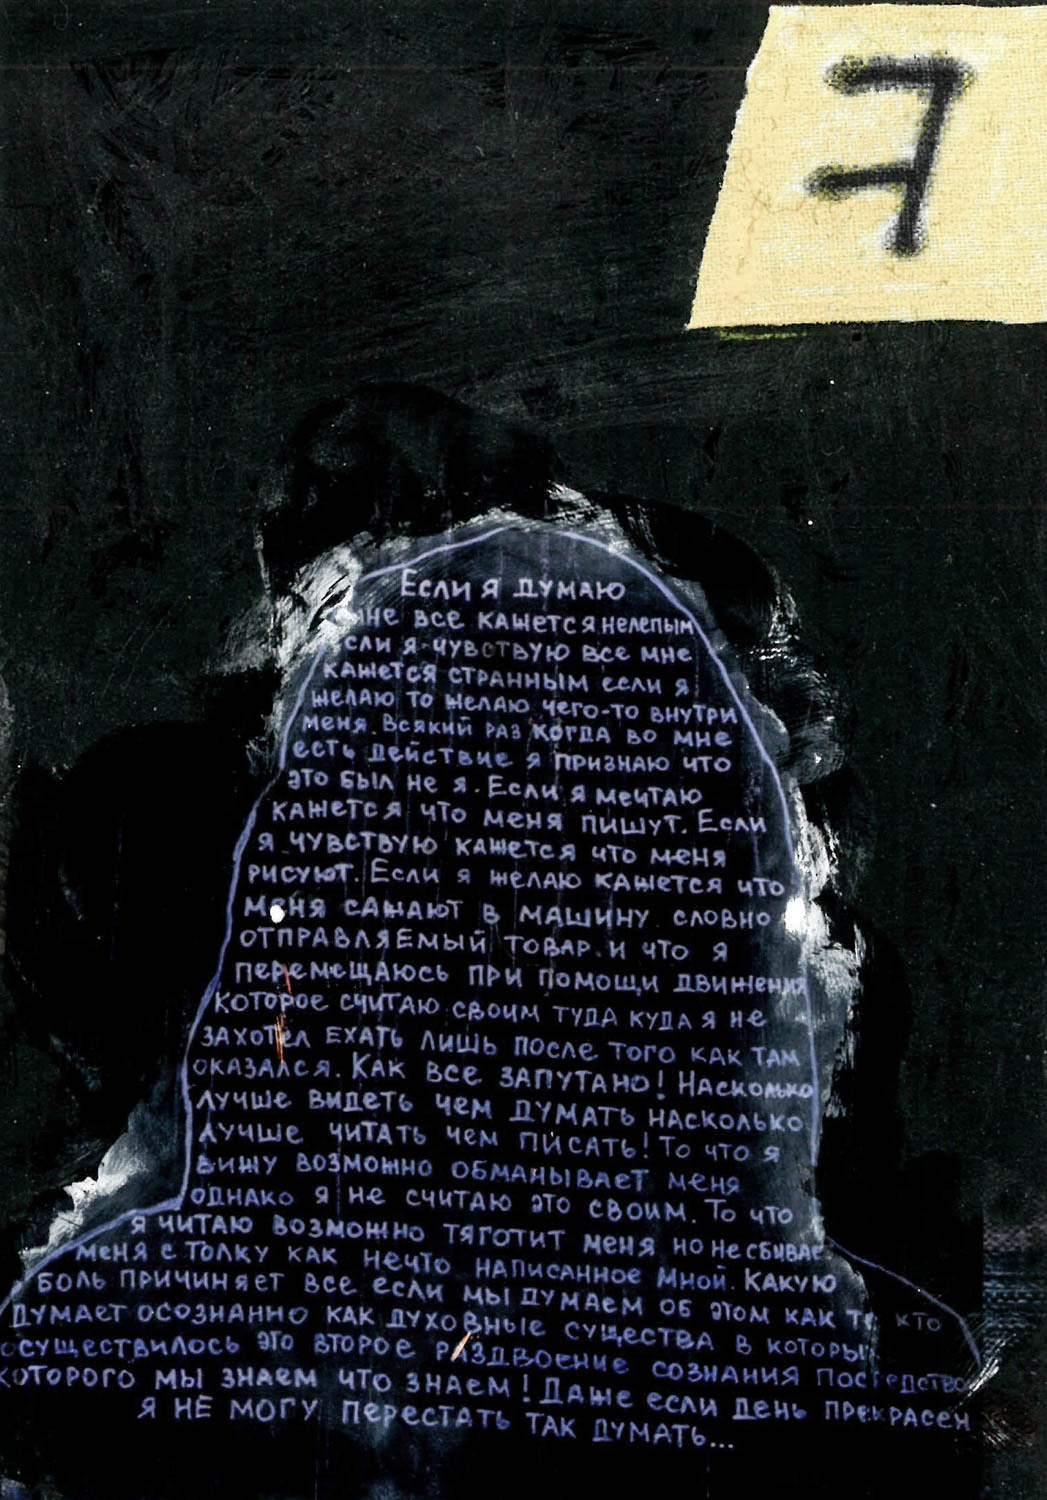 Если я думаю
мне все кажется нелепым
если я чувствую все мне
кажется странным если я
желаю то желаю чего-то внутри
меня. Всякий раз когда во мне
есть действие я признаю что
это был не я. Если я мечтаю
кажется что меня пишут. Если
я чувствую кажется что меня
рисуют. Если я желаю кажется что
меня сажают в машину словно
отправляемый товар и что я
перемещаюсь при помощи движения
которое считаю своим туда куда я не
захотел ехать лишь после того как там
оказался. Как все запутано! Насколько
лучше видеть чем думать насколько
лучше читать чем писать! То что я
вижу возможно обманывает меня
однако я не считаю это своим. То что
я читаю возможно тяготит меня но не сбивае
меня с толку как нечто написанное мной. Какую
боль причиняет все если мы думаем об этом как те кто
думает осознанно как духовные существа в которых
осуществилось это второе раздвоение сознания посредство
которого мы знаем что знаем! Даже если день прекрасен
я не могу перестать так думать...